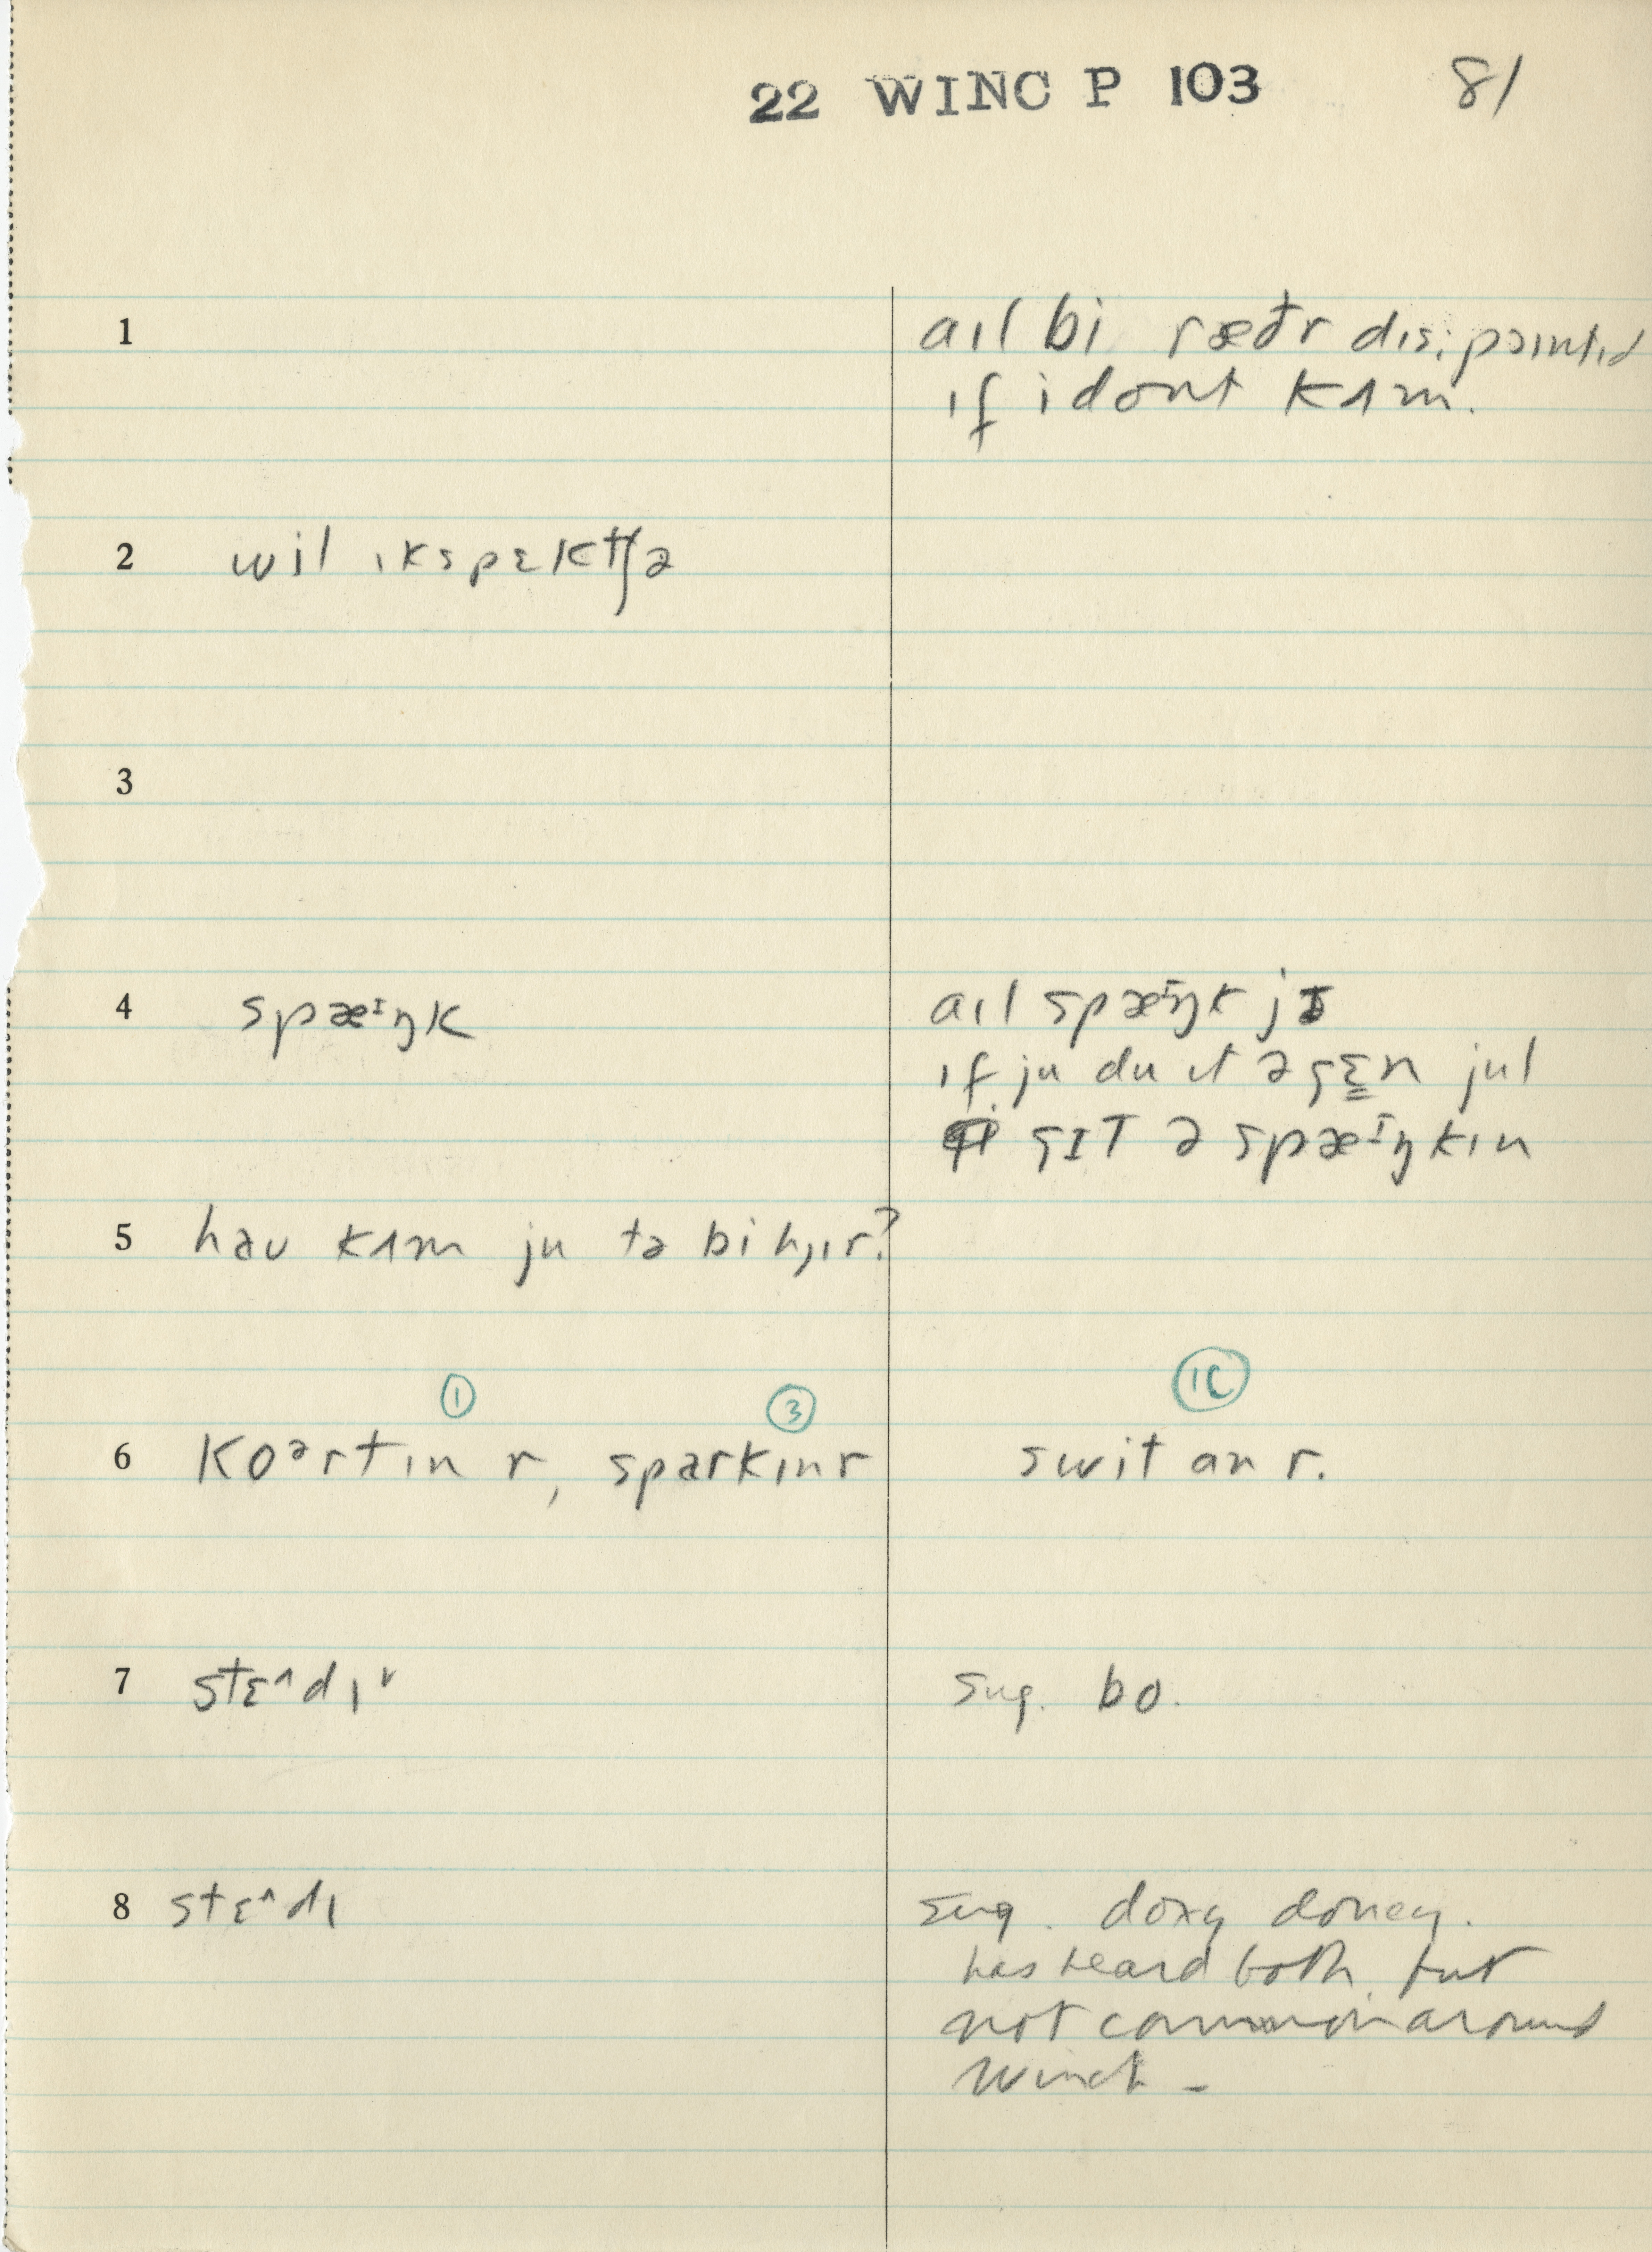 22 WINC P 103 81
1 aɪl bi ræðr dɪsɪpɔɪntɪd
ɪf i dont kʌm.
2 wil ɪkspɛktʃə
3
4 spæᶦŋk aɪl spæᶦŋk jɪ
ɪf ju du ɪt əgɛn jul
gɪt ə spæᶦŋkɪn
5 həu kʌm ju tə bi hjɪr?
① ③ ①C
6 koᵊrtɪn r, sparkɪn r swit an r.
7 stɛ^dɪˇ sug. bo.
8 stɛ^dɪ sug. doxy doney.
has heard both but
not common around
Winch -